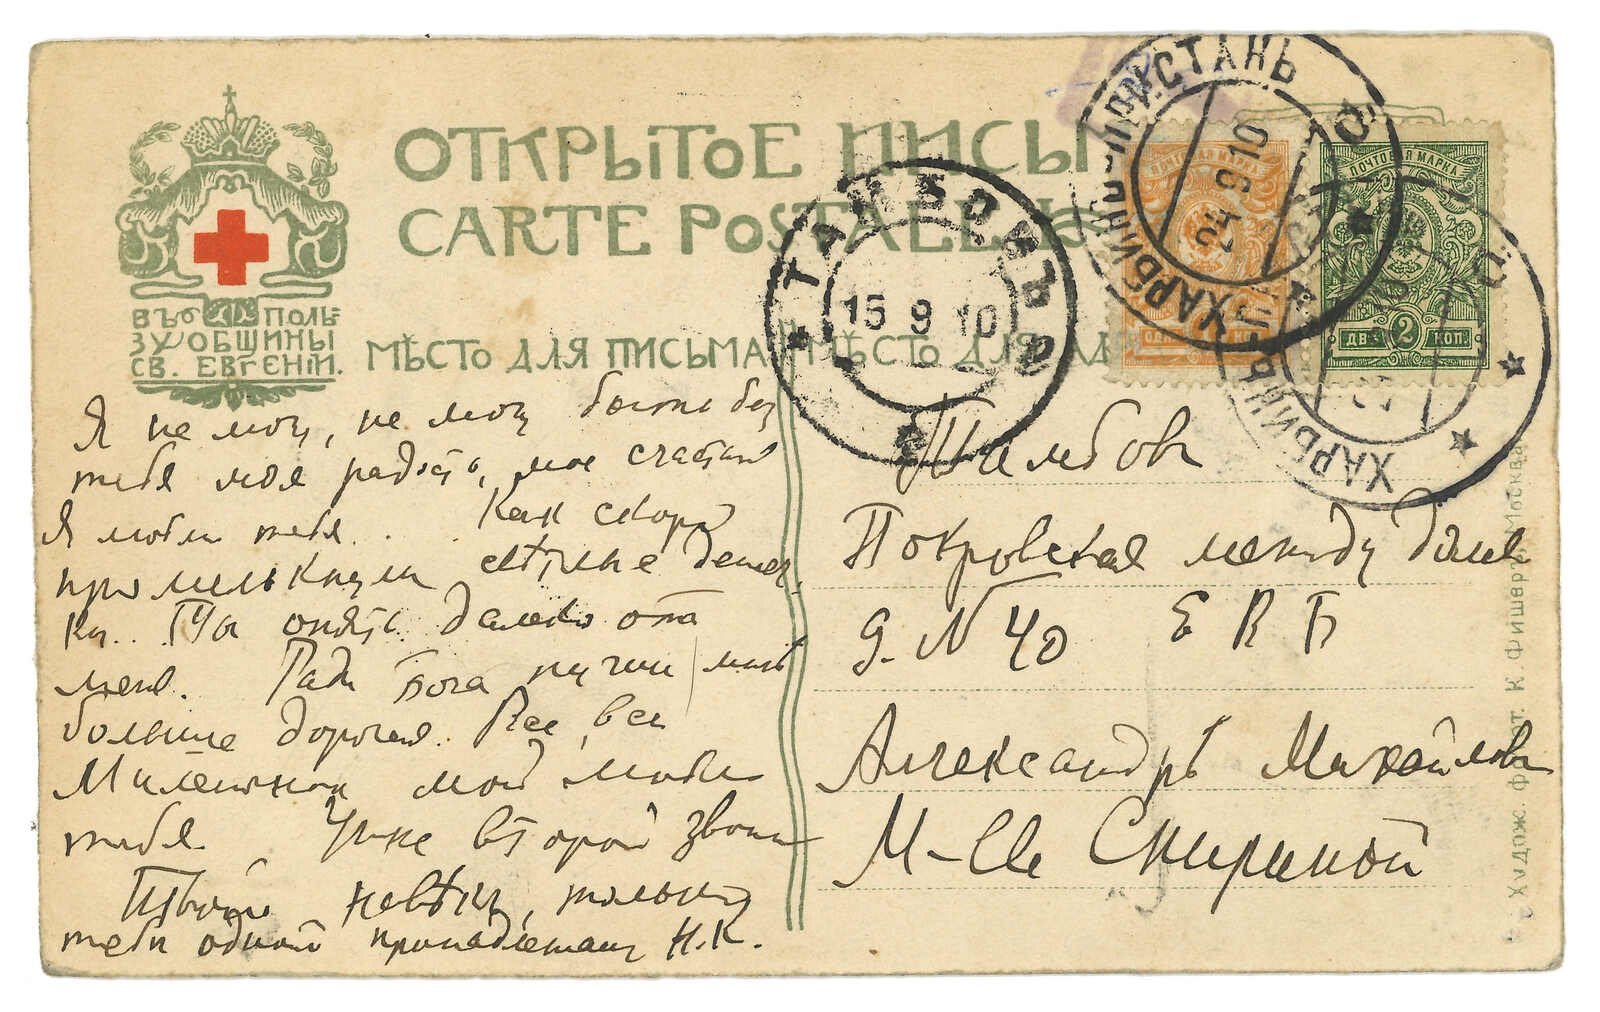 ОТКРЫТОЕ ПИСЬ
CARTE POSTALE
ВЪ ПОЛЬ=
ЗУ ОБЩИНЫ
СВ. ЕВГЕНІИ.
МѢСТО ДЛЯ ПИСЬМА
МѢСТО ДЛЯ АД
ТАМБОВЪ
15 9 10
ХАРБИНЪ-ПРИСТАНЬ
24 8 10
ПОЧТОВАЯ МАРКА
ОДН КОП.
ПОЧТОВАЯ МАРКА
ДВѢ 2 КОП.
ХАРБИНЪ-П
Я не могу, не могу быть без
тебя моя радость, мое счастье
Я люблю тебя . . . Как скоро
промелькнули свѣтлые денеч
ки.. Ты опять далеко отъ
меня. Ради Бога пиши мнѣ
больше дорогая. Все, все
Миленькая моя люблю
тебя. Уже второй звонок
Твой навѣки, только
тебѣ одной принадлежащ Н.К.
Тамбовъ
Покровская между
д. № 40 Е В Б
Александрѣ Михайловн
М-lle Смирной
Худож. фотот. К. Фишеръ, Москва